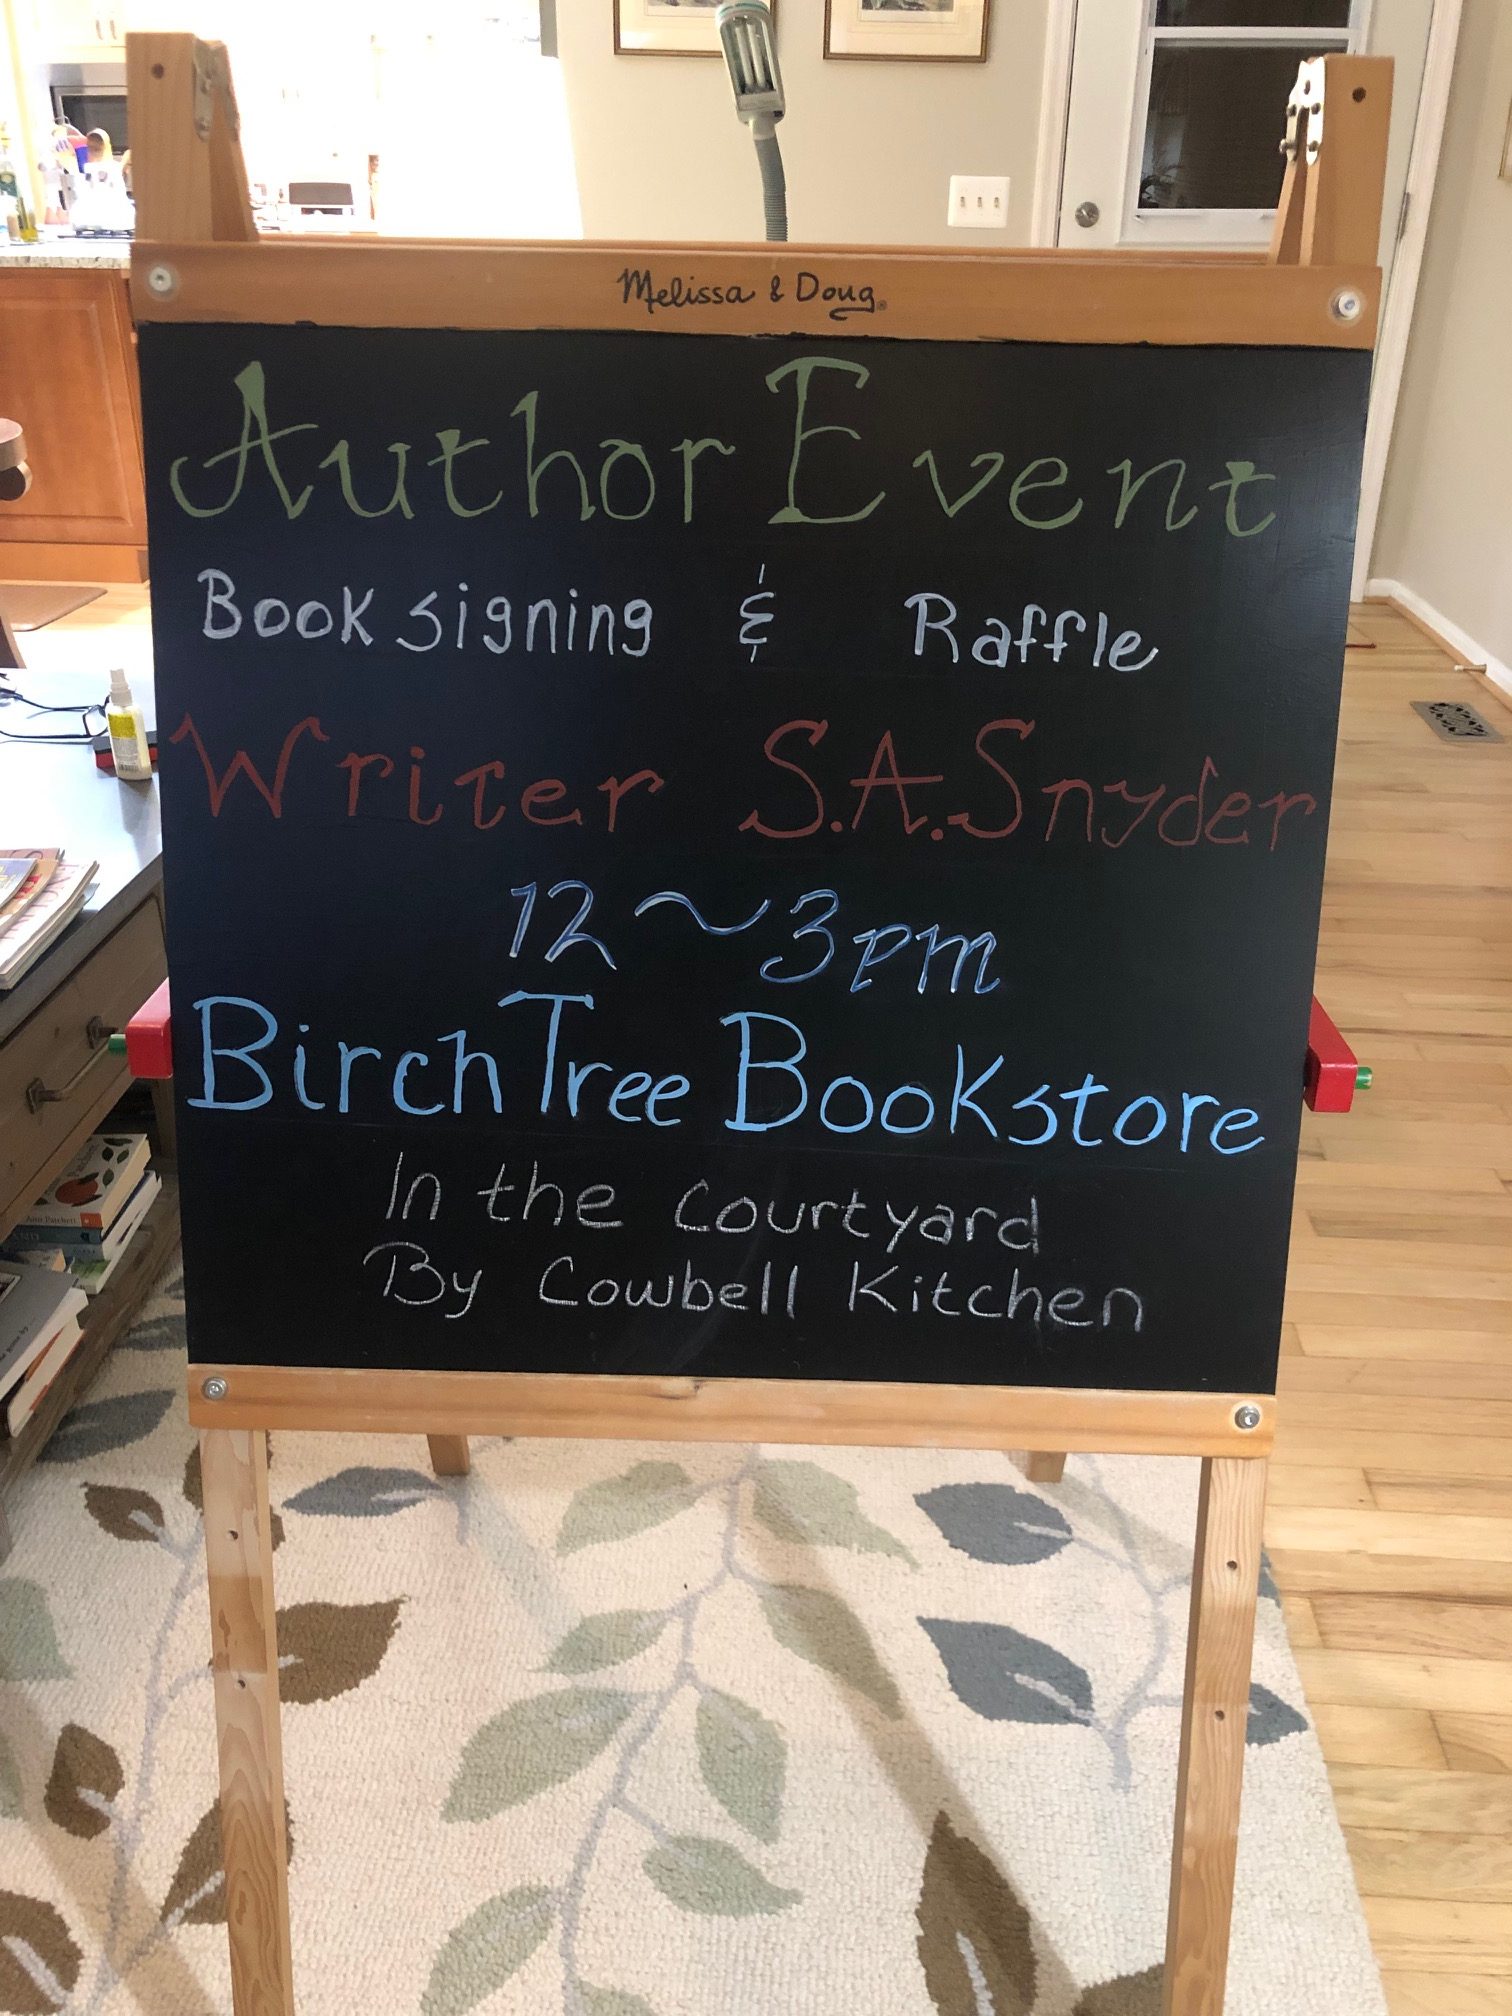 Melissa & Doug
Author Event
Book signing & Raffle
Writer S.A. Snyder
12~3pm
Birch Tree Bookstore
In the Courtyard
By Cowbell Kitchen
Ann Patchett